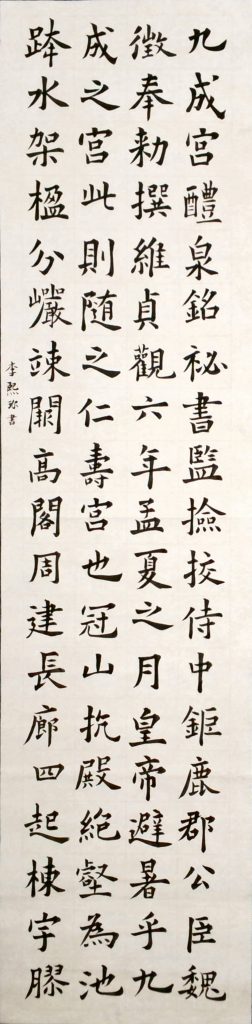 九成宮醴泉銘祕書監撿挍侍中鉅鹿郡公臣魏
徵奉勑撰維貞觀六年孟夏之月皇帝避暑乎九
成之宮此則隨之仁壽宮也冠山抗殿絕壑為池
跨水架楹分巖竦闕高閣周建長廊四起棟宇膠
李熙珍書